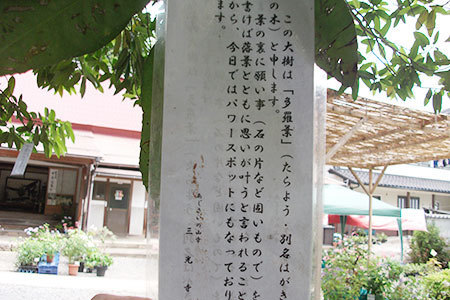 この大樹は「多羅葉」（たらよう・別名はがき
の木）と申します。
葉の裏に願い事（石の片など固いもので）を
書けば落葉とともに思いが叶うと言われること
から、今日ではパワースポットにもなっており
ます。
あじさいの山寺
三光寺